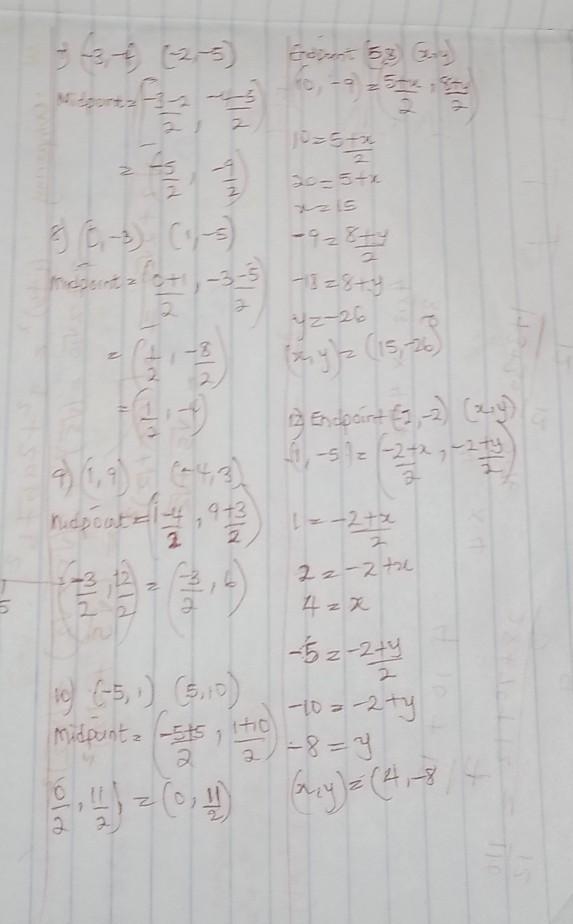 7) (-3,-4) (-2,-5)
Midpoint = (-3-2/2, -4-5/2)
= (-5/2, -9/2)
8) (0,-3) (1,-5)
Midpoint = (0+1/2, -3-5/2)
= (1/2, -8/2)
= (1/2, -4)
9) (1,9) (-4,3)
Midpoint = (1-4/2, 9+3/2)
= (-3/2, 12/2) = (-3/2, 6)
10) (-5,1) (5,10)
Midpoint = (-5+5/2, 1+10/2)
0/2, 11/2) = (0, 11/2)
Endpoint (5,8) (x,y)
(10, -9) = (5+x/2, 8+y/2)
10 = 5+x/2
20 = 5+x
x = 15
-9 = 8+y/2
-18 = 8+y
y = -26
(x,y) = (15,-26)
12) Endpoint (-2,-2) (x,y)
(1, -5) = (-2+x/2, -2+y/2)
1 = -2+x/2
2 = -2+x
4 = x
-5 = -2+y/2
-10 = -2+y
-8 = y
(x,y) = (4,-8)